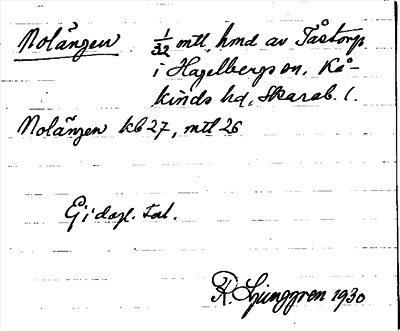 Nolängen 1/32 mtl, hmd av Tåstorp
i Hagelbergs sn. Kå-
kinds hd, Skarab. l.
Nolängen kb 27, mtl 26
Ej i dagl. tal.
R. Ljunggren 1930